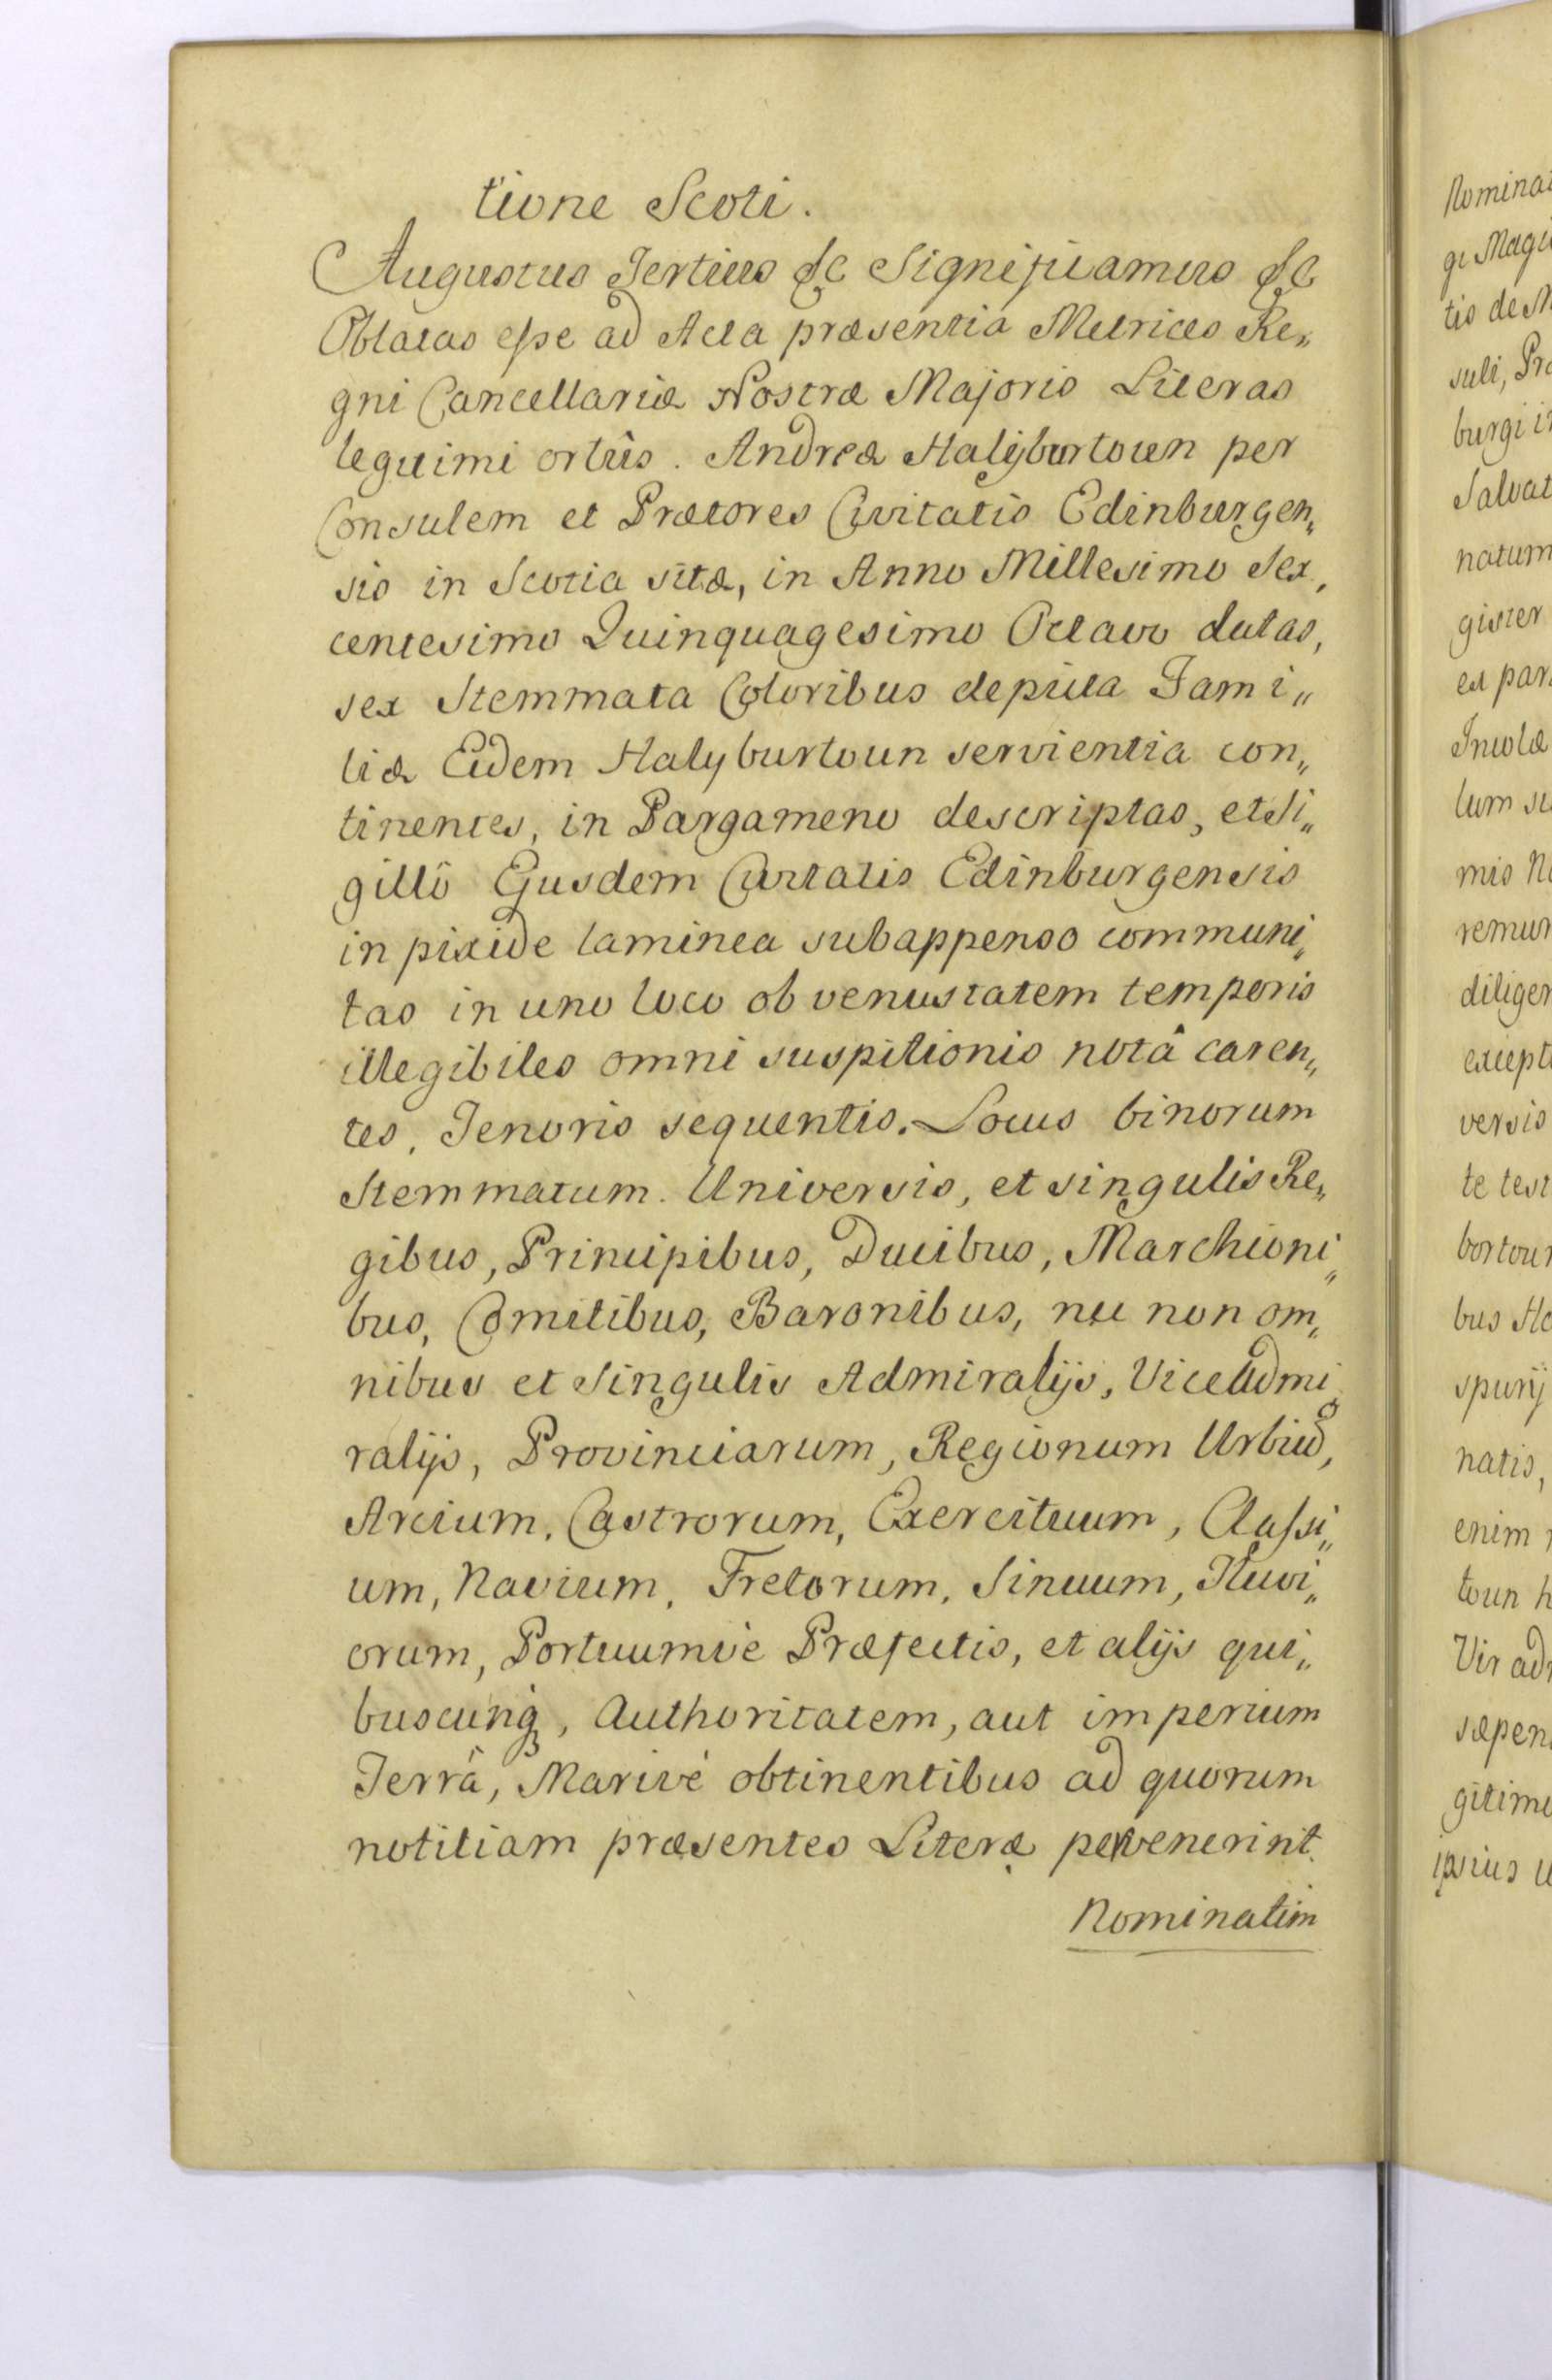 tione Scoti.
Augustus Tertius &c Significamus &c
Oblatas esse ad Acta præsentia Metrices Re„
gni Cancellariæ Nostræ Majoris Literas
legitimi ortûs. Andreæ Halyburtoun per
Consulem et Prætores Civitatis Edinburgen„
sis in Scotia sitæ, in Anno Millesimo Sex„
centesimo Quinquagesimo Octavo datas,
sex Stemmata Coloribus depicta Fami„
liæ Eidem Halyburtoun servientia con„
tinentes, in Pargameno descriptas, et Si„
gillô Ejusdem Civitatis Edinburgensis
in pixide laminea subappenso communi„
tas in uno loco ob venustatem temporis
illegibiles omni suspitionis notâ caren„
tes, Tenoris sequentis. Locus binorum
Stemmatum. Universis, et singulis Re„
gibus, Principibus, Ducibus, Marchioni„
bus, Comitibus, Baronibus, nec non om„
nibus et Singulis Admiralijs, Viceadmi„
ralijs, Provinciarum, Regionum Urbiu͂,
Arcium, Castrorum, Exercituum, Classi„
um, Navium, Fretorum, Sinuum, Fluvi„
orum, Portuumvè Præfectis, et alijs qui„
buscunq̢, Authoritatem, aut imperium
Terrâ, Marivè obtinentibus ad quorum
notitiam præsentes Literæ pervenerint.
Nominatim
gi Magi
tis de M
suli, Pr
burgi i
Salvat
natum
gister
ex par
Incolæ
lum su
mis N
remun
diligen
except
versis
te test
bortoun
bus Ha
spurij
natis,
enim
toun h
Vir ad
sæpen
gitim
ipsius u